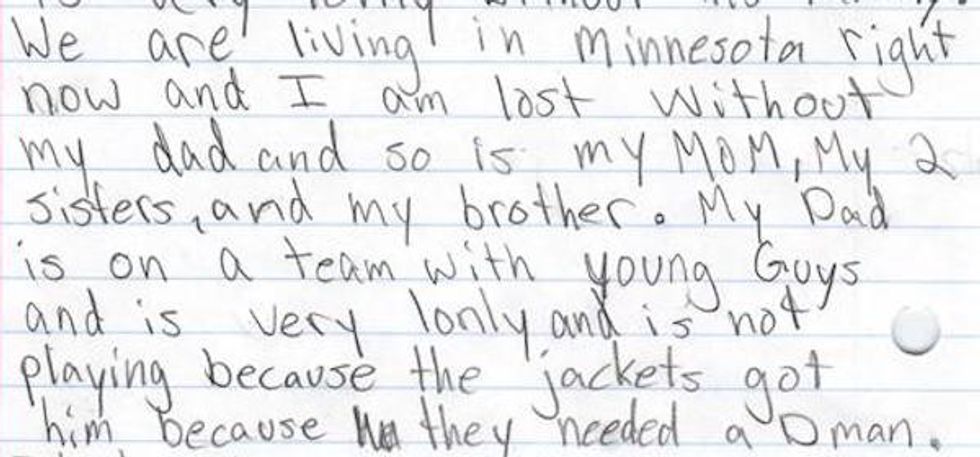 We are living in Minnesota right
now and I am lost without
my dad and so is my MOM, My 2
sisters, and my brother. My Dad
is on a team with young Guys
and is very lonly and is not
playing because the jackets got
him because they needed a D man.